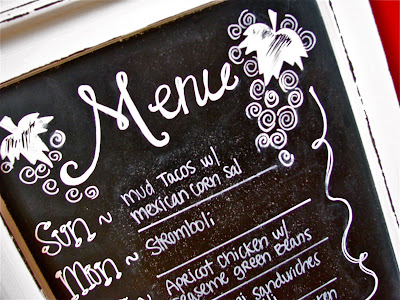 Menu
Sun ~ mud Tacos w/
mexican corn sal
Mon ~ Stromboli
Apricot chicken w/
sesame green Beans
sandwiches